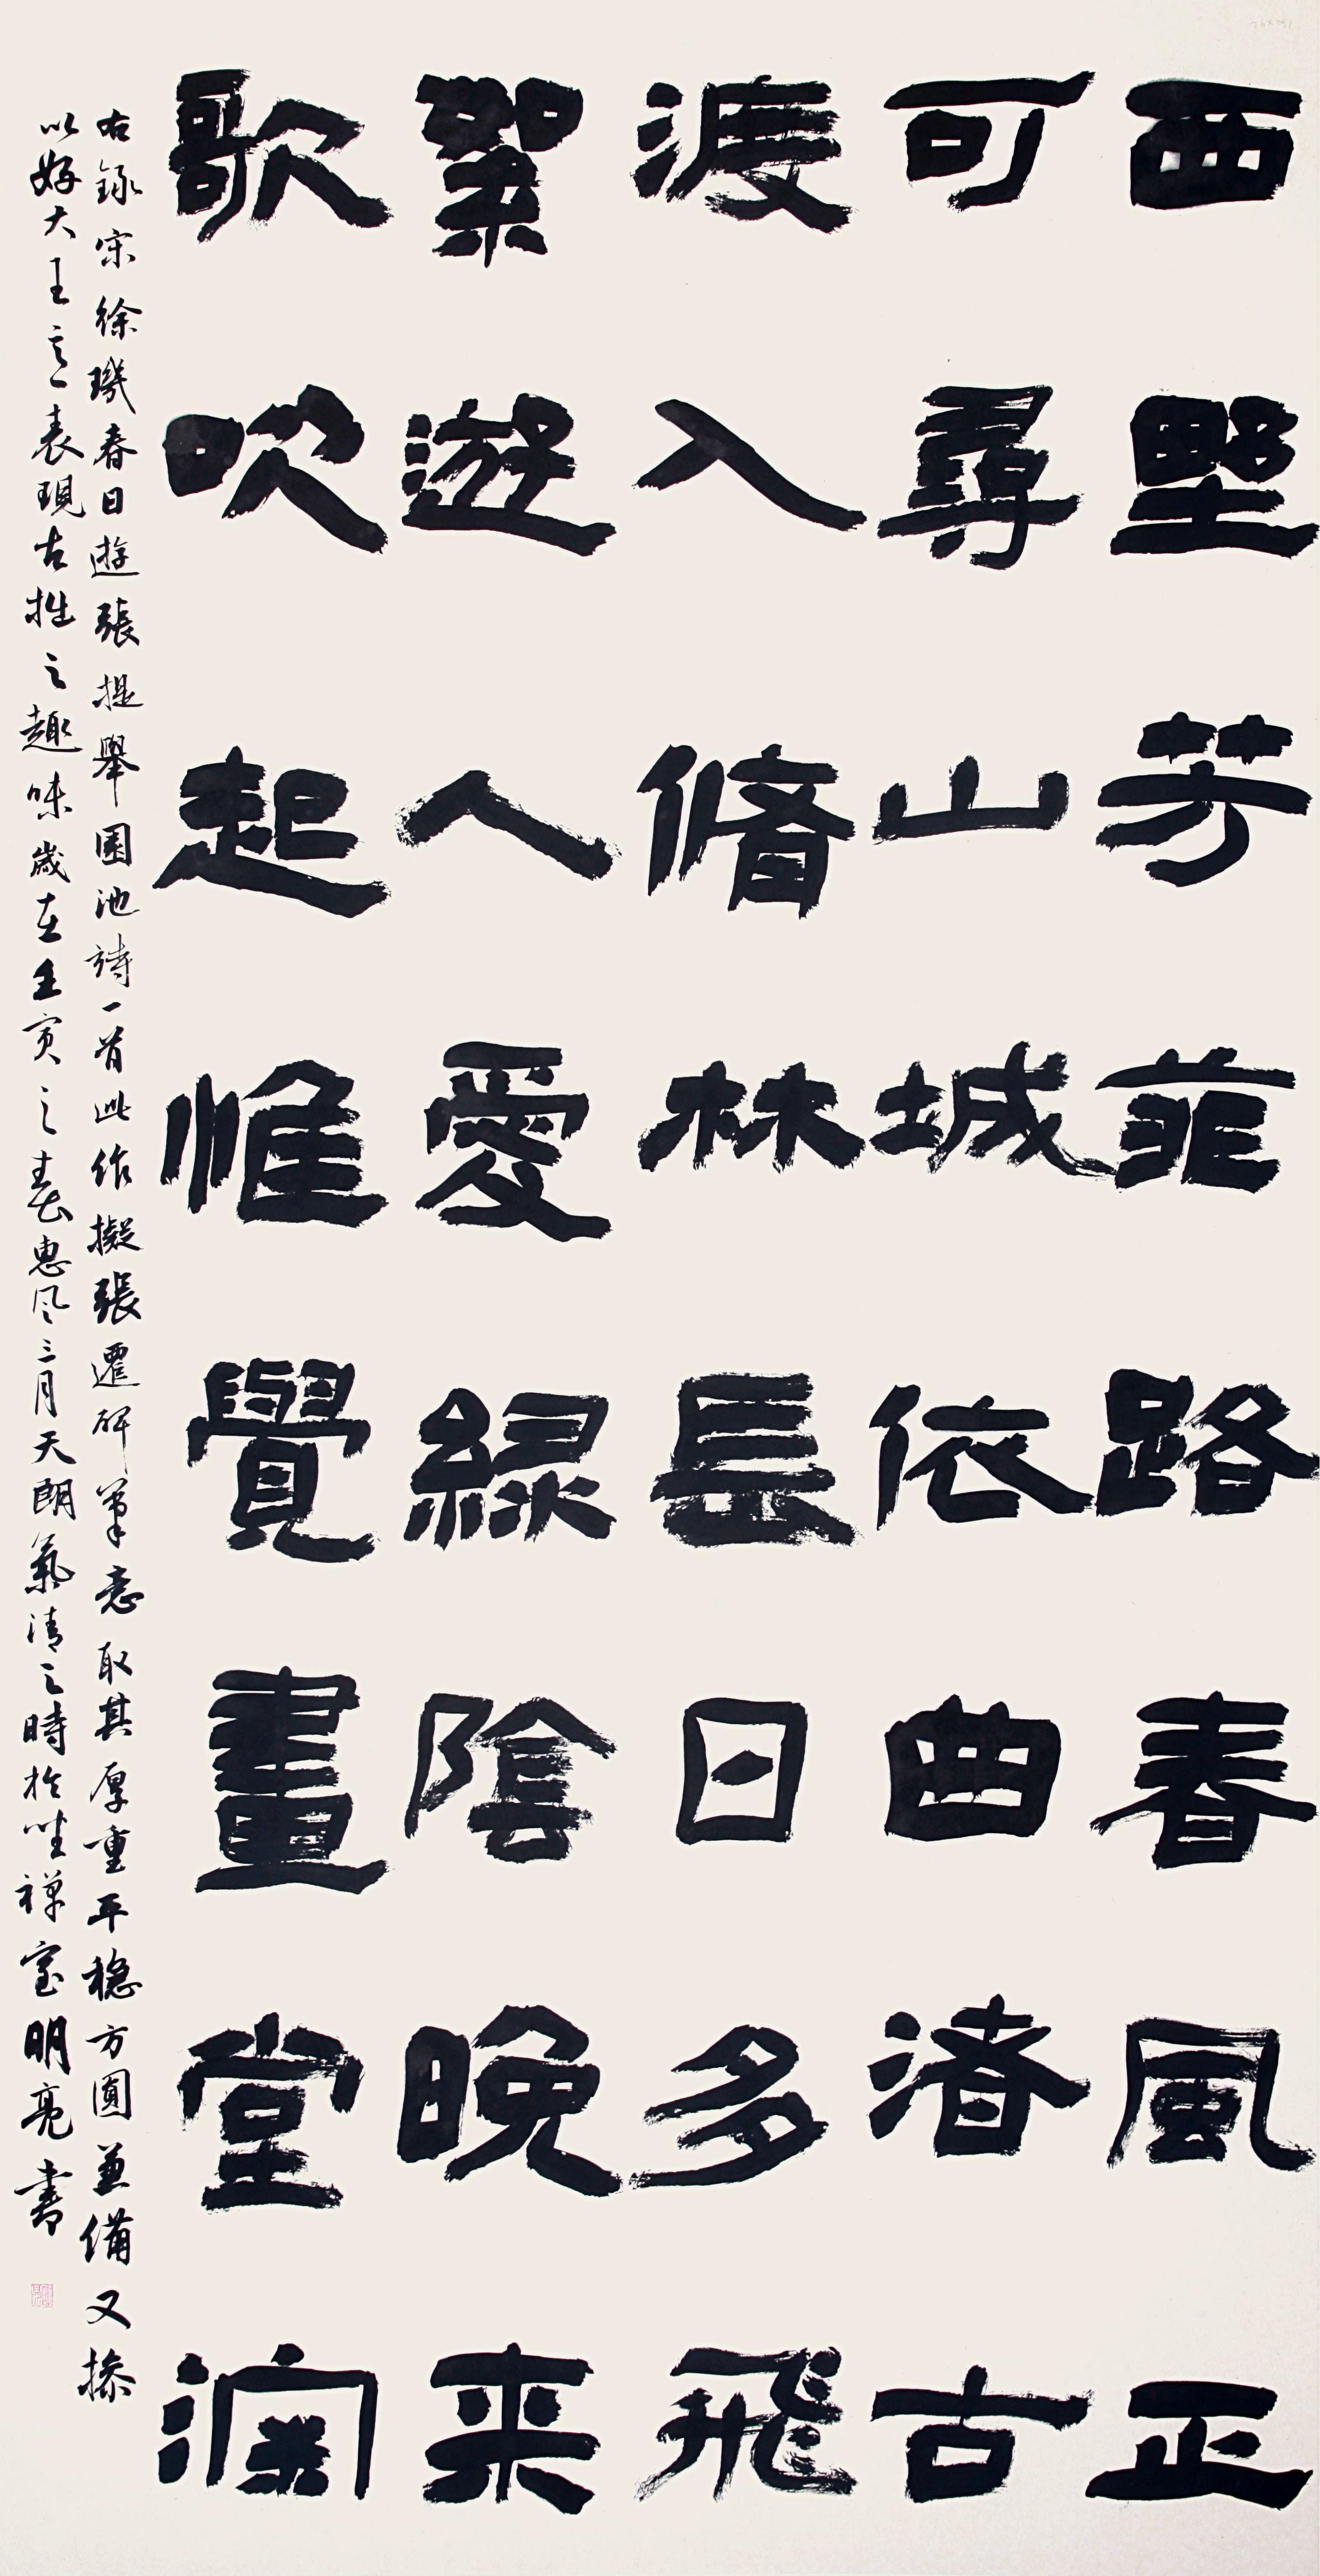 西野芳菲路春風正
可尋山城依曲渚古
渡入脩林長日多飛
絮遊人愛綠陰晚来
歌吹起惟覺畫堂深
右録宋徐璣春日遊張提舉園池詩一首此作擬張遷碑筆意取其厚重平穩方圓兼備又摻
以好大王之意表現古拙之趣味歲在壬寅之春惠风三月天朗氣清之時於坐禅室明亮書